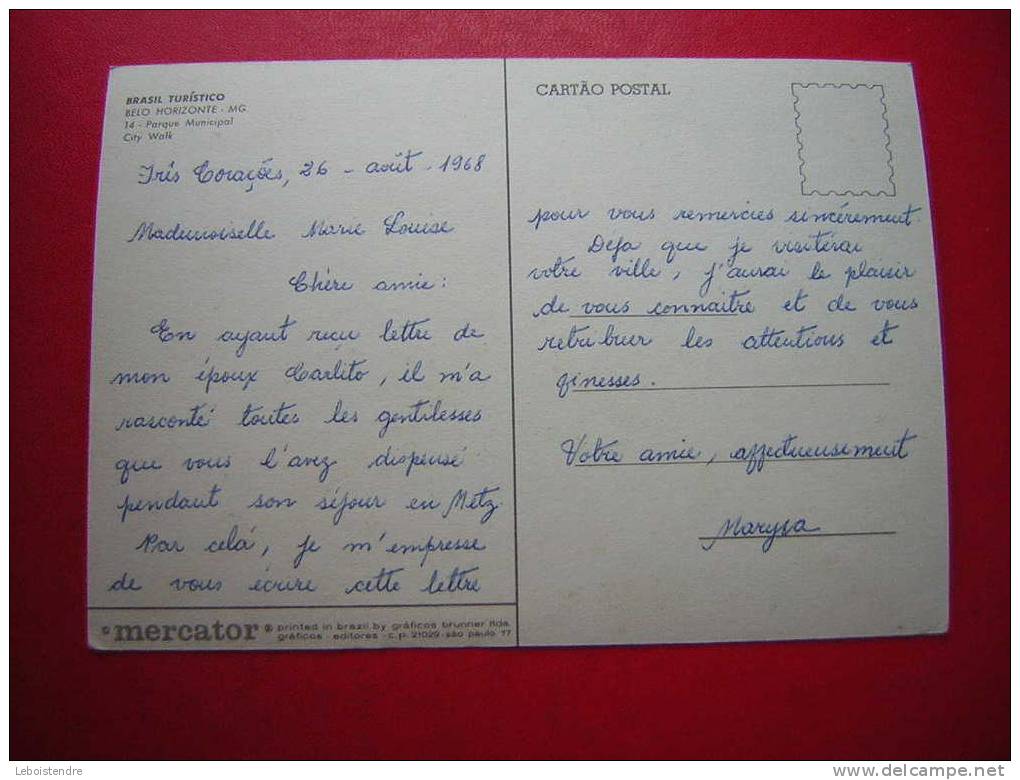 BRASIL TURÍSTICO
BELO HORIZONTE - MG
14 - Parque Municipal
City Walk
Três Corações, 26 - août - 1968
Mademoiselle Marie Louise
Chère amie:
En ayant reçu lettre de
mon époux Carlito, il m'a
rasconté toutes les gentilesses
que vous l'avez dispensé
pendant son séjour en Metz.
Par celá, je m'empresse
de vous écrire cette lettre
mercator ® printed in brazil by gráficos brunner ltda.
gráficos - editores - c.p. 21029 - são paulo 77
CARTÃO POSTAL
pour vous remercies sincérement.
Déja que je visitérai
votre ville, j'aurai le plaisir
de vous connaitre et de vous
retribuer les attentions et
finesses.
Votre amie, affectueusement
Marysa
Leboistendre
www.delcampe.net